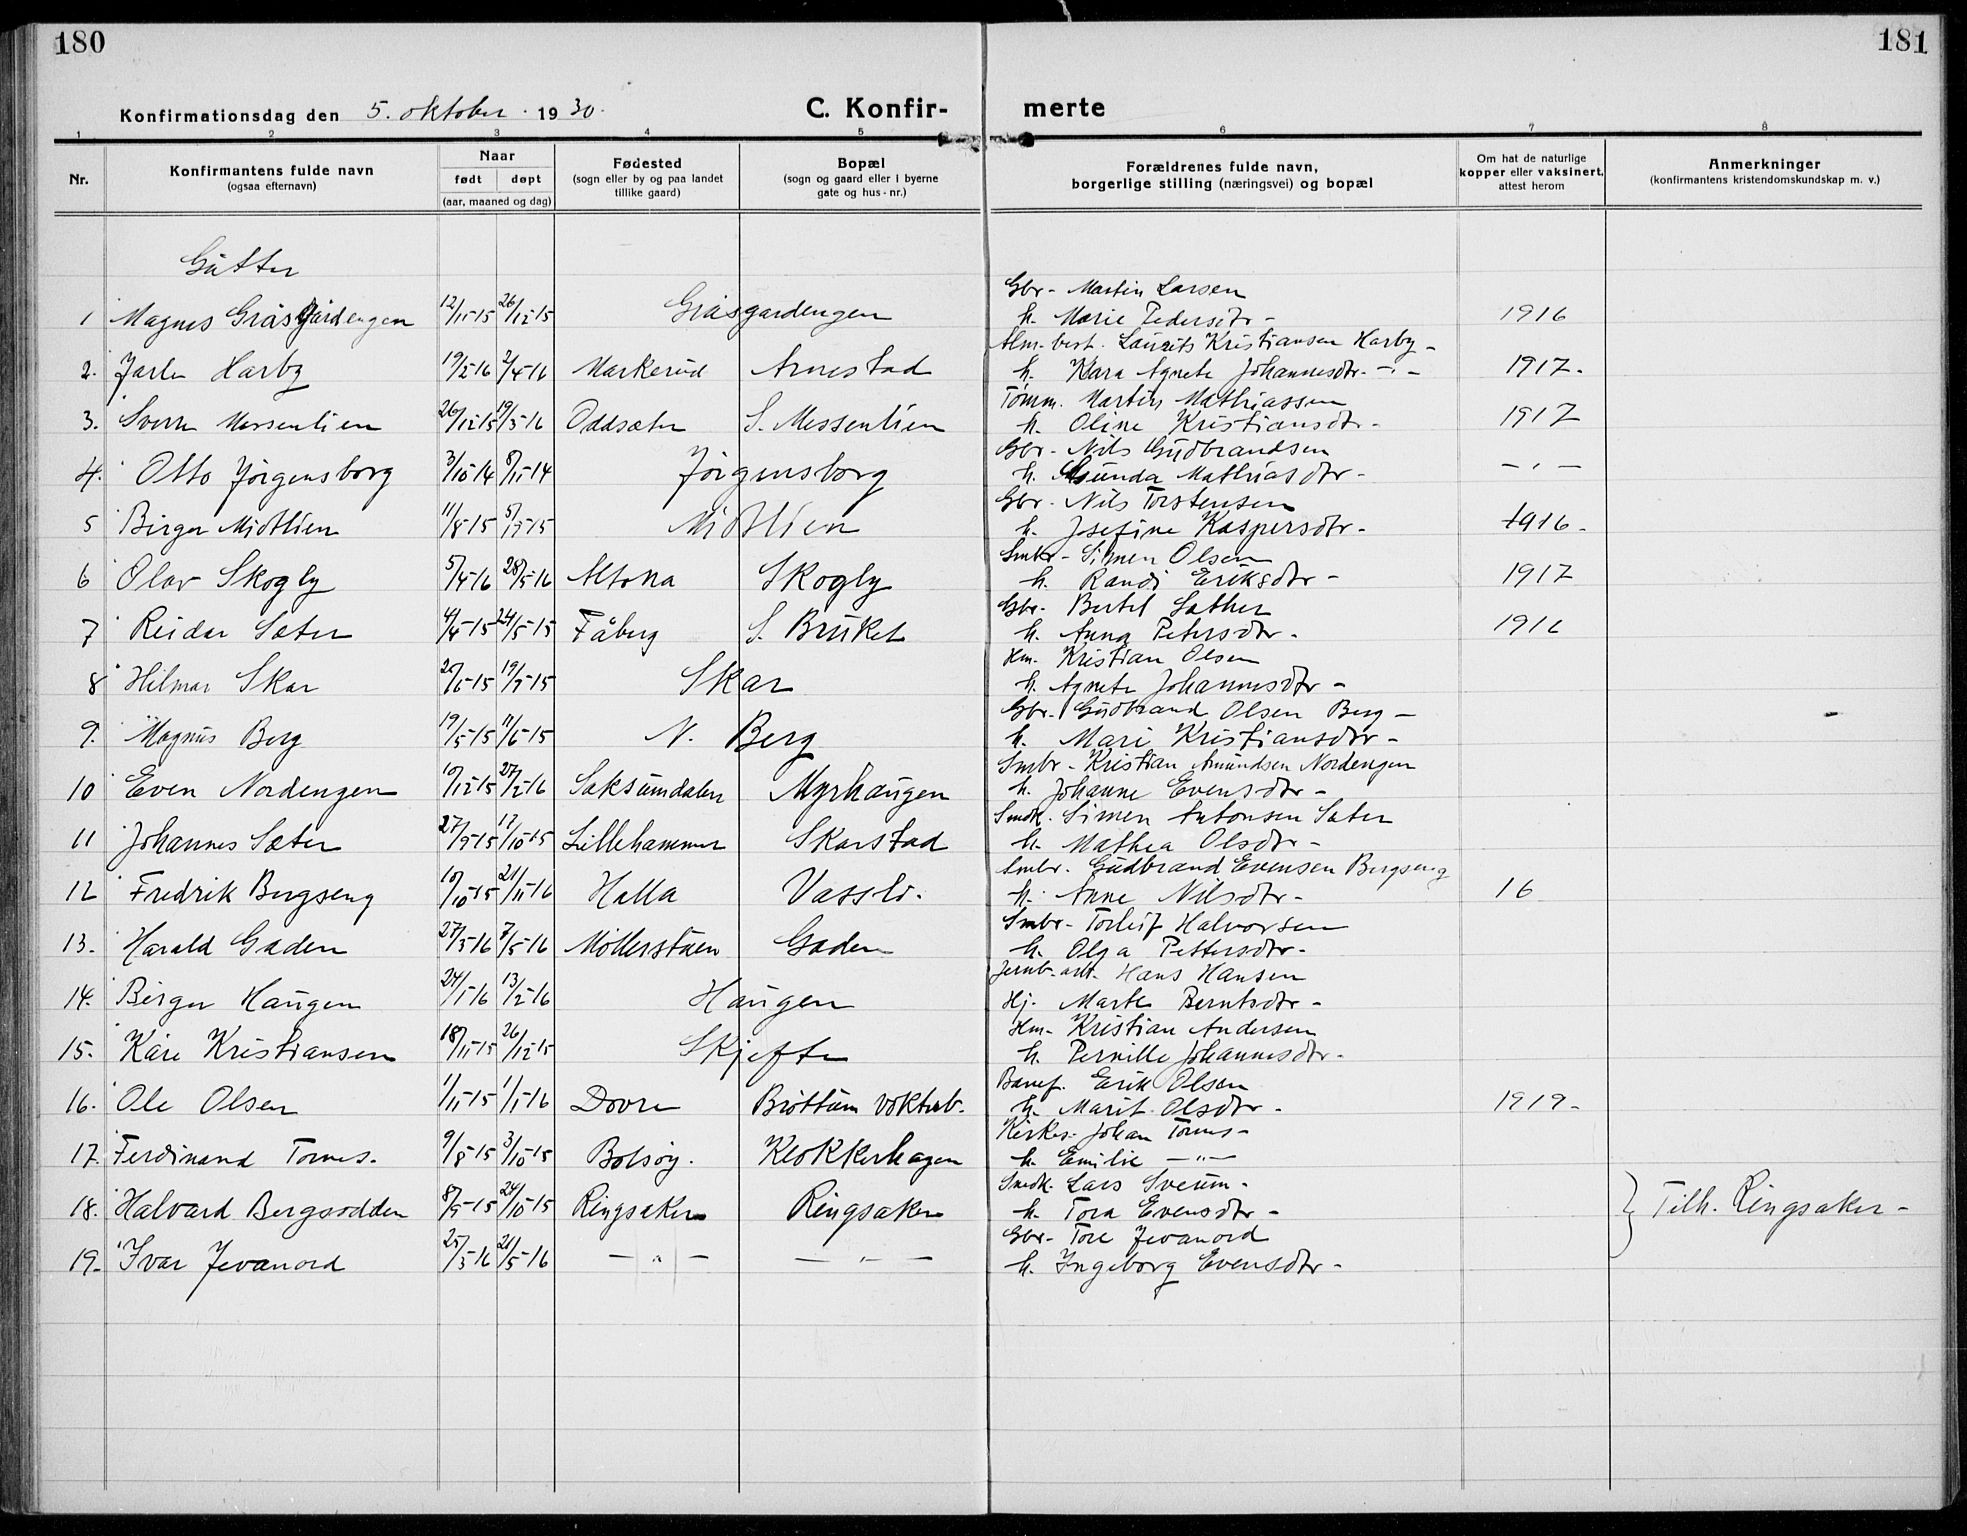 180
181
Konfirmationsdag den 5. oktober 1930.
C. Konfir-
merte
1 2 3 4 5 6 7 8
Nr.
Konfirmantens fulde navn
(ogsaa efternavn)
Naar
født døpt
(aar, maaned og dag)
Fødested
(sogn eller by og paa landet
tillike gaard)
Bopæl
(sogn og gaard eller i byerne
gate og hus-nr.)
Forældrenes fulde navn,
borgerlige stilling (næringsvei) og bopæl
Om hat de naturlige
kopper eller vaksinert,
attest herom
Anmerkninger
(konfirmantens kristendomskundskap m. v.)
Gutter
Gbr. Martin Larsen
1 Magnus Gråsgårdengen 12/11-15 26/12-15 Gråsgardengen h. Marie Pedersdtr - 1916
Alm. best. Laurits Kristiansen Harby -
2. Jarle Harby 19/2-16 2/4-16 Markerud Arnestad h. Klara Agnete Johannesdtr. -"- 1917.
Tømm. Martin Mathiassen
3. Sverre Messenlien 26/12-15 19/3-16 Oddsæter S. Messenlien h. Oline Kristiansdtr - 1917
Gbr - Nils Gudbrandsen
4. Otto Jørgensborg 3/10-14 8/11-14 Jørgensborg h. Gunda Mathiasdtr - - " -
Gbr - Nils Torstensen
5 Birger Midtlien 11/8-15 5/9-15 Midtlien h. Josefine Kaspersdtr - 1916.
Smbr - Simen Olsen
6 Olav Skogly 5/4-16 28/5-16 Altona Skogly h. Randi Eriksdtr - 1917
Gbr. Bertel Sæther
7 Reidar Sæter 4/4-15 24/5-15 Fåberg S. Bruket h. Anna Petersdtr. 1916
Hm. Kristian Olsen
8 Hilmar Skar 20/6-15 19/9-15 Skar h. Agnete Johannesdtr -
Gbr. Gudbrand Olsen Berg -
9. Magnus Berg 19/5-15 11/6-15 N. Berg h. Mari Kristiansdtr -
Smbr - Kristian Amundsen Nordengen
10 Even Nordengen 10/12-15 27/2-16 Saksumdalen Myrhaugen h. Johanne Evensdtr -
Smdk. Simen Antonsen Sæter
11 Johannes Sæter 27/9-15 17/10-15 Lillehammer Skarstad h. Mathea Olsdtr -
Smbr. Gudbrand Evensen Bergseng
12 Fredrik Bergseng 10/10-15 21/11-16 Halla Vassli. h. Anne Nilsdtr - 16
Smbr - Torleif Halvorsen
13. Harald Gaden 27/3-16 7/5-16 Møllerstuen Gaden h. Olga Pettersdtr -
Jernb. arb. Hans Hansen
14. Birger Haugen 24/1-16 13/2-16 Haugen Hj. Marte Berntsdtr -
Hm - Kristian Andersen
15. Kåre Kristiansen 18/11-15 26/12-15 Skjefte h. Pernille Johannesdtr -
Banef. Erik Olsen
16. Ole Olsen 11/11-15 1/1-16 Dovre Brøttum vokterb. h. Marit Olsdtr - 1919 -
Kirkes. Johan Tornes -
17. Ferdinand Tornes. 9/8-15 3/10-15 Bolsøy. Klokkerhagen h. Emilie - " -
Smdk. Lars Sveum -
18. Halvard Bergsodden 8/9-15 24/10-15 Ringsaker Ringsaker h. Tora Evensdtr - Tilh. Ringsaker -
Gbr - Tore Jevanord
19. Ivar Jevanord 25/3-16 21/5-16 - " - - " - h. Ingeborg Evensdtr -